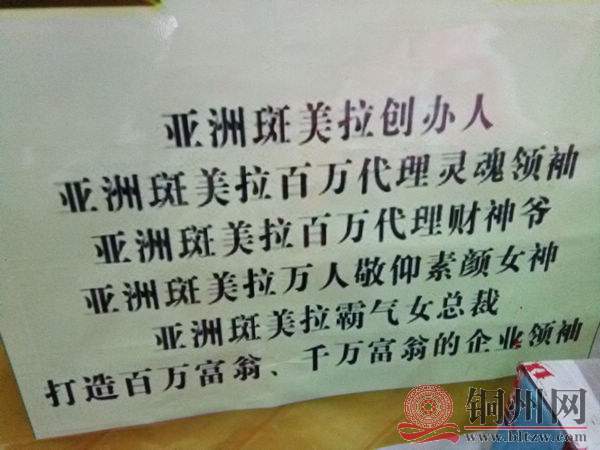 亚洲斑美拉创办人
亚洲斑美拉百万代理灵魂领袖
亚洲斑美拉百万代理财神爷
亚洲斑美拉万人敬仰素颜女神
亚洲斑美拉霸气女总裁
打造百万富翁、千万富翁的企业领袖
铜州网
www.hltzw.com